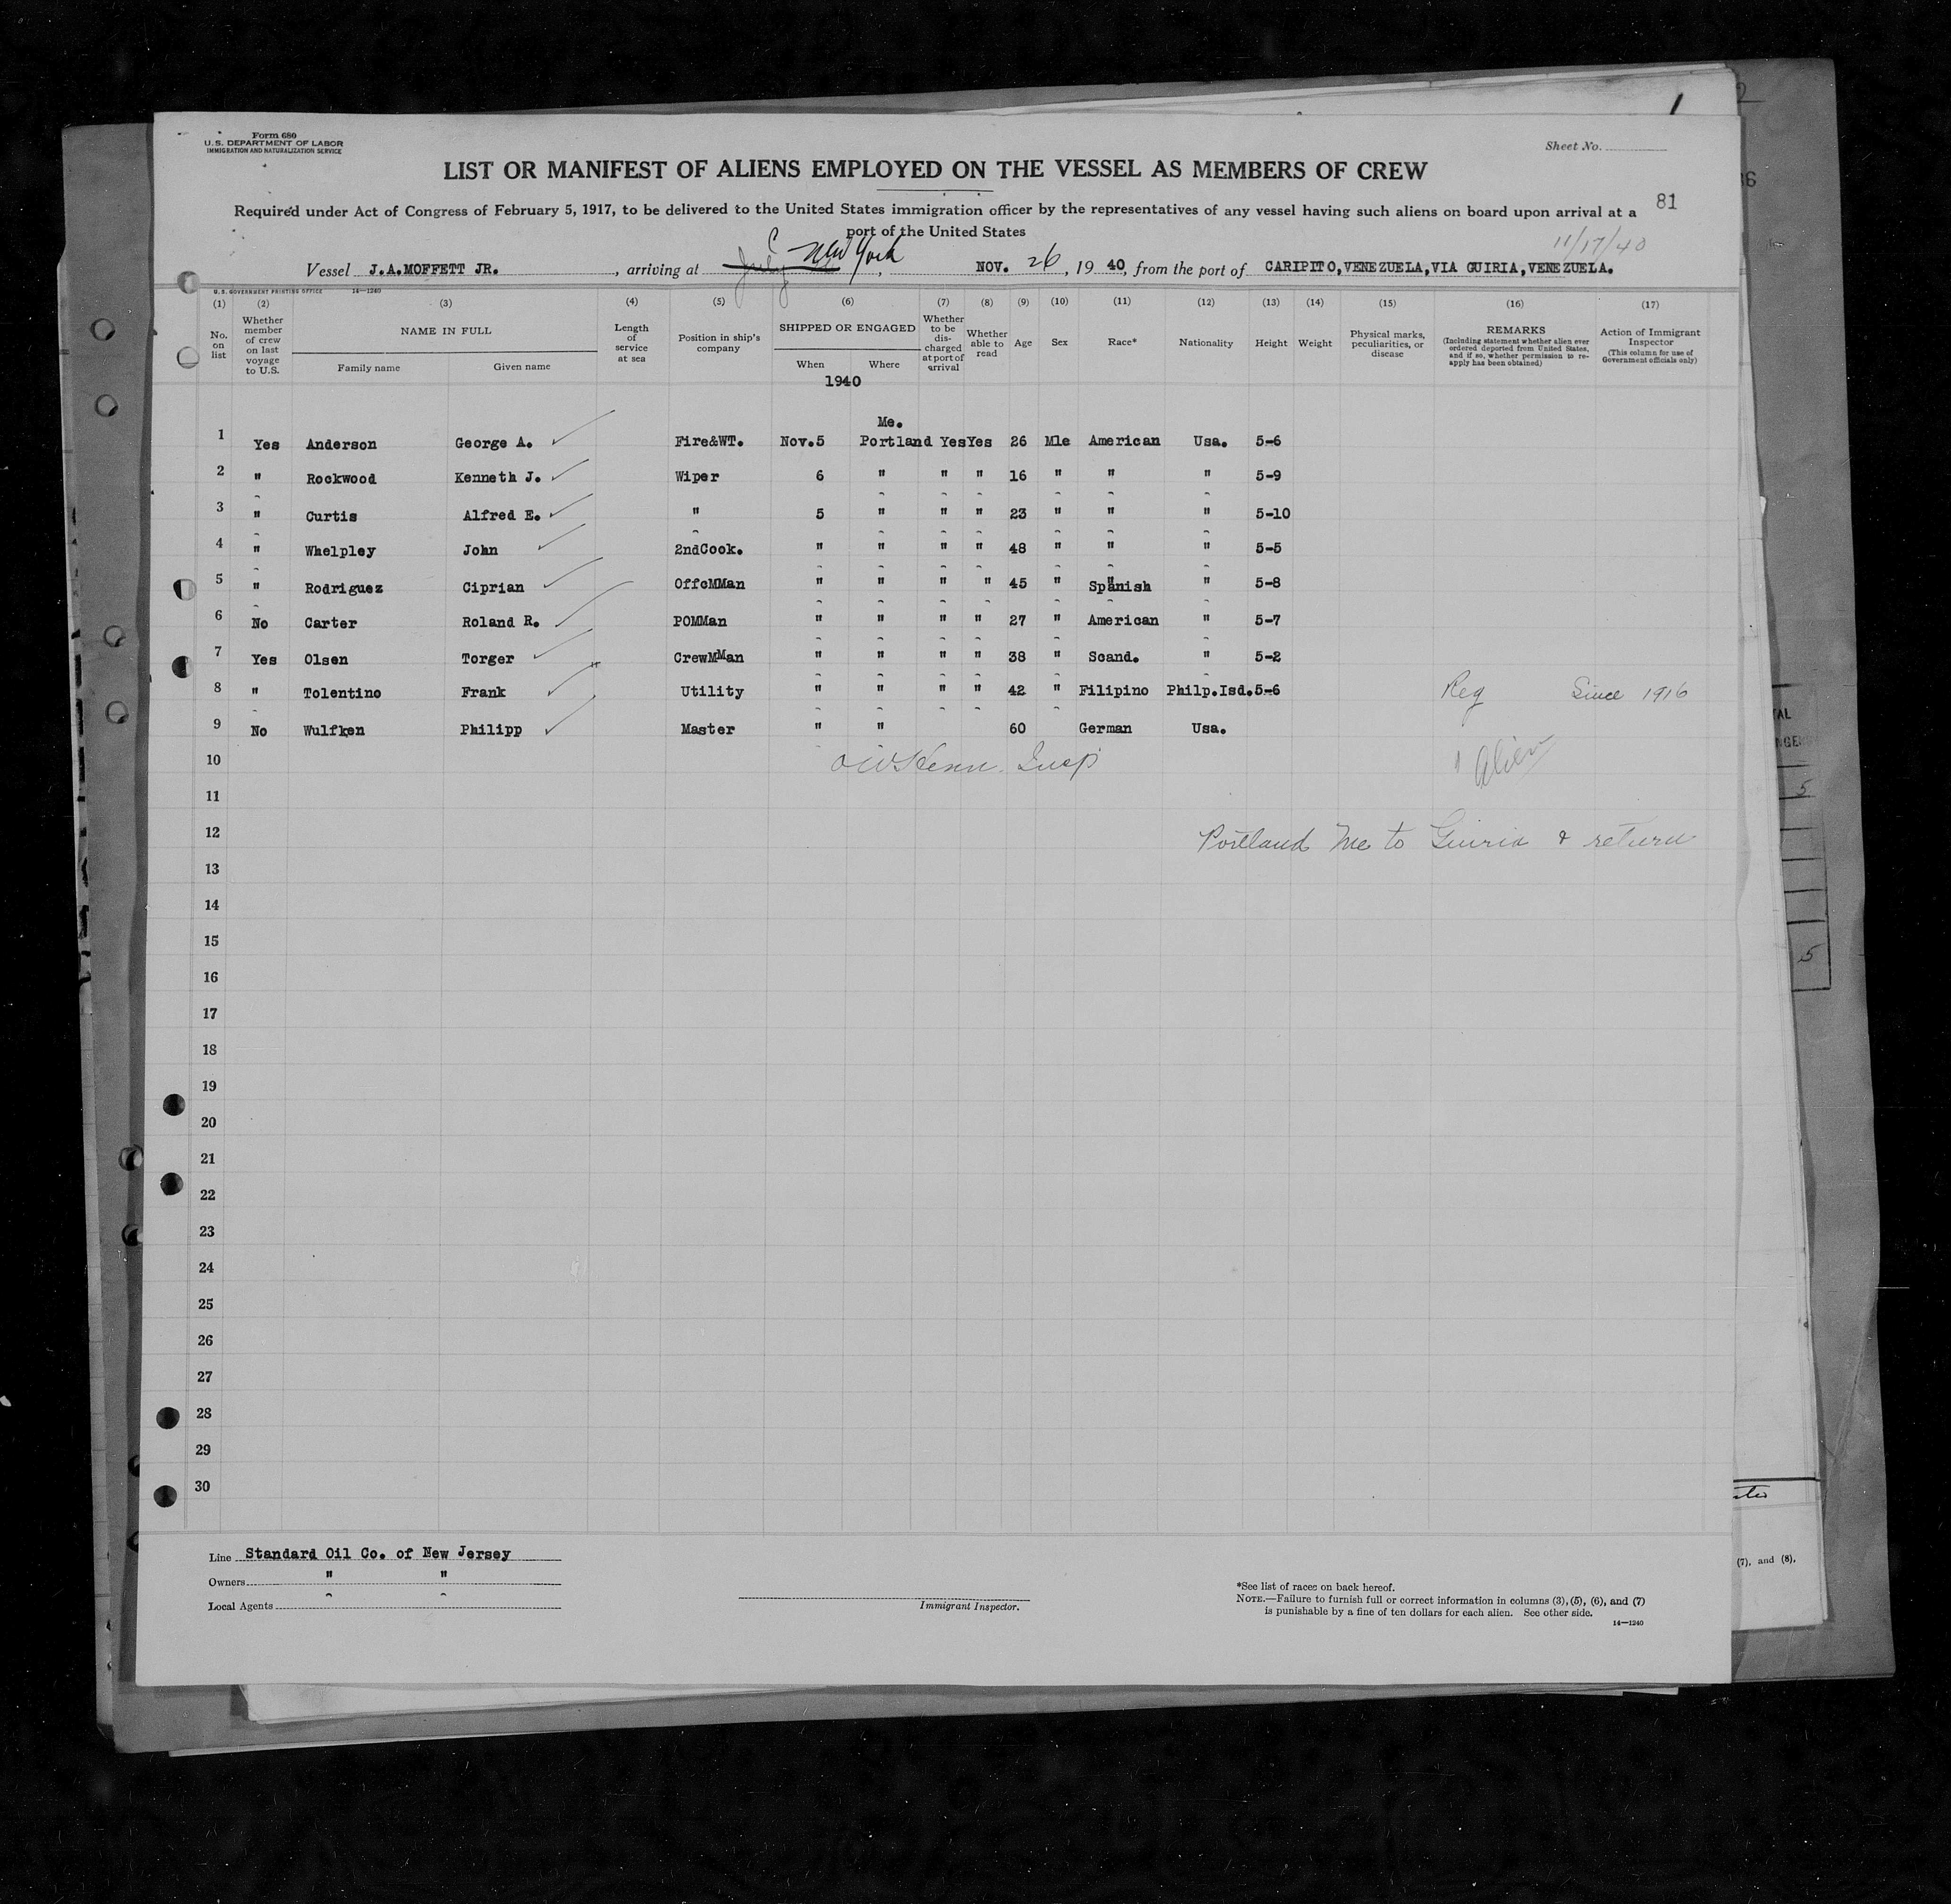 1
Form 680
U. S. DEPARTMENT OF LABOR
IMMIGRATION AND NATURALIZATION SERVICE
Sheet No.
LIST OR MANIFEST OF ALIENS EMPLOYED ON THE VESSEL AS MEMBERS OF CREW
81
Required under Act of Congress of February 5, 1917, to be delivered to the United States immigration officer by the representatives of any vessel having such aliens on board upon arrival at a
port of the United States
11/17/40
Vessel J.A.MOFFETT JR. , arriving at New York , NOV. 26 , 19 40, from the port of CARIPITO,VENEZUELA,VIA GUIRIA,VENEZUELA.
U. S. GOVERNMENT PRINTING OFFICE 14—1240
(1) (2) (3) (4) (5) (6) (7) (8) (9) (10) (11) (12) (13) (14) (15) (16) (17)
No. on list
Whether member of crew on last voyage to U.S.
NAME IN FULL
Family name Given name
Length of service at sea
Position in ship's company
SHIPPED OR ENGAGED
When Where
Whether to be discharged at port of arrival
Whether able to read
Age Sex Race* Nationality Height Weight
Physical marks, peculiarities, or disease
REMARKS
(Including statement whether alien ever ordered deported from United States, and if so, whether permission to re-apply has been obtained)
Action of Immigrant Inspector
(This column for use of Government officials only)
1940
Me.
1 Yes Anderson George A. Fire&WT. Nov.5 Portland Yes Yes 26 Mle American Usa. 5-6
2 " Rockwood Kenneth J. Wiper 6 " " " 16 " " " 5-9
3 " Curtis Alfred E. " 5 " " " 23 " " " 5-10
4 " Whelpley John 2ndCook. " " " " 48 " " " 5-5
5 " Rodriguez Ciprian OffcMMan " " " " 45 " Spanish " 5-8
6 No Carter Roland R. POMMan " " " " 27 " American " 5-7
7 Yes Olsen Torger CrewMMan " " " " 38 " Scand. " 5-2
8 " Tolentino Frank Utility " " " " 42 " Filipino Philp.Isd. 5-6 Reg Since 1916
9 No Wulfken Philipp Master " " 60 German Usa.
10 Insp 1 Alien
11
12 Portland Me to Guiria & return
13
14
15
16
17
18
19
20
21
22
23
24
25
26
27
28
29
30
Line Standard Oil Co. of New Jersey
Owners " "
Local Agents
Immigrant Inspector.
*See list of races on back hereof.
NOTE.—Failure to furnish full or correct information in columns (3), (5), (6), and (7)
is punishable by a fine of ten dollars for each alien. See other side.
14—1240
(7), and (8).
5
5